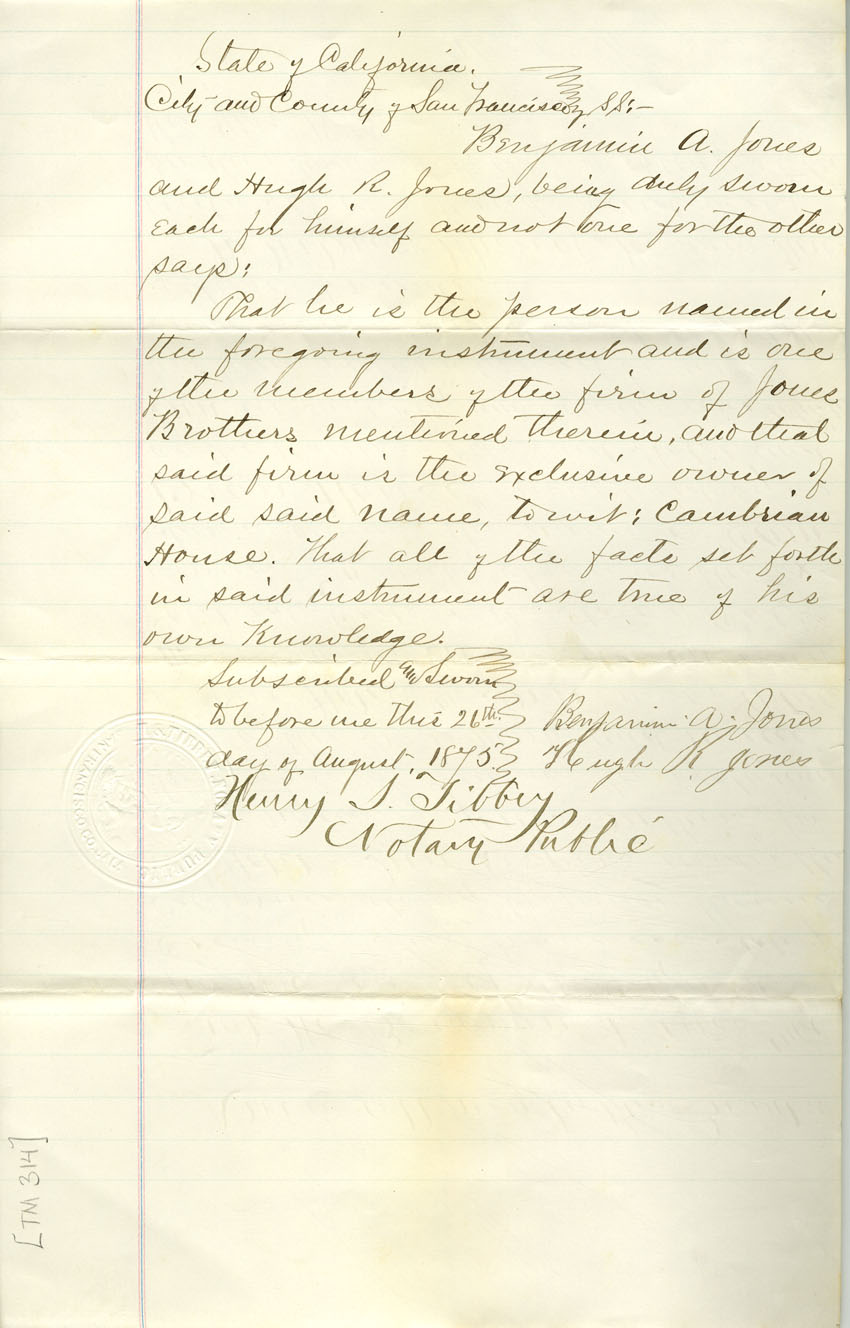 State of California.
City and County of San Francisco SS:-
Benjamin A. Jones
and Hugh R. Jones, being duly sworn
each for himself and not one for the other
says:
That he is the person named in
the foregoing instrument and is one
of the members of the firm of Jones
Brothers mentioned therein, and that
said firm is the exclusive owner of
said said name, to wit: Cambrian
House. That all of the facts set forth
in said instrument are true of his
own Knowledge.
Subscribed and Sworn
to before me this 26th
day of August, 1875.
Benjamin A. Jones
Hugh R Jones
Henry S. Tibbey
Notary Public
[TM 314]